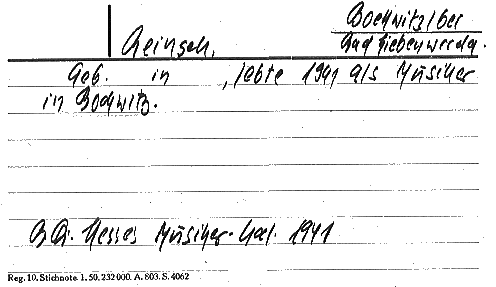 Bockwitz über
Reinsch, Bad Liebenwerda.
Geb. in , lebte 1941 als Musiker
in Bockwitz.
Hesses Musiker-Kal. 1941
Reg. 10. Stichnote. 1. 50. 232000. A. 803. S. 4062